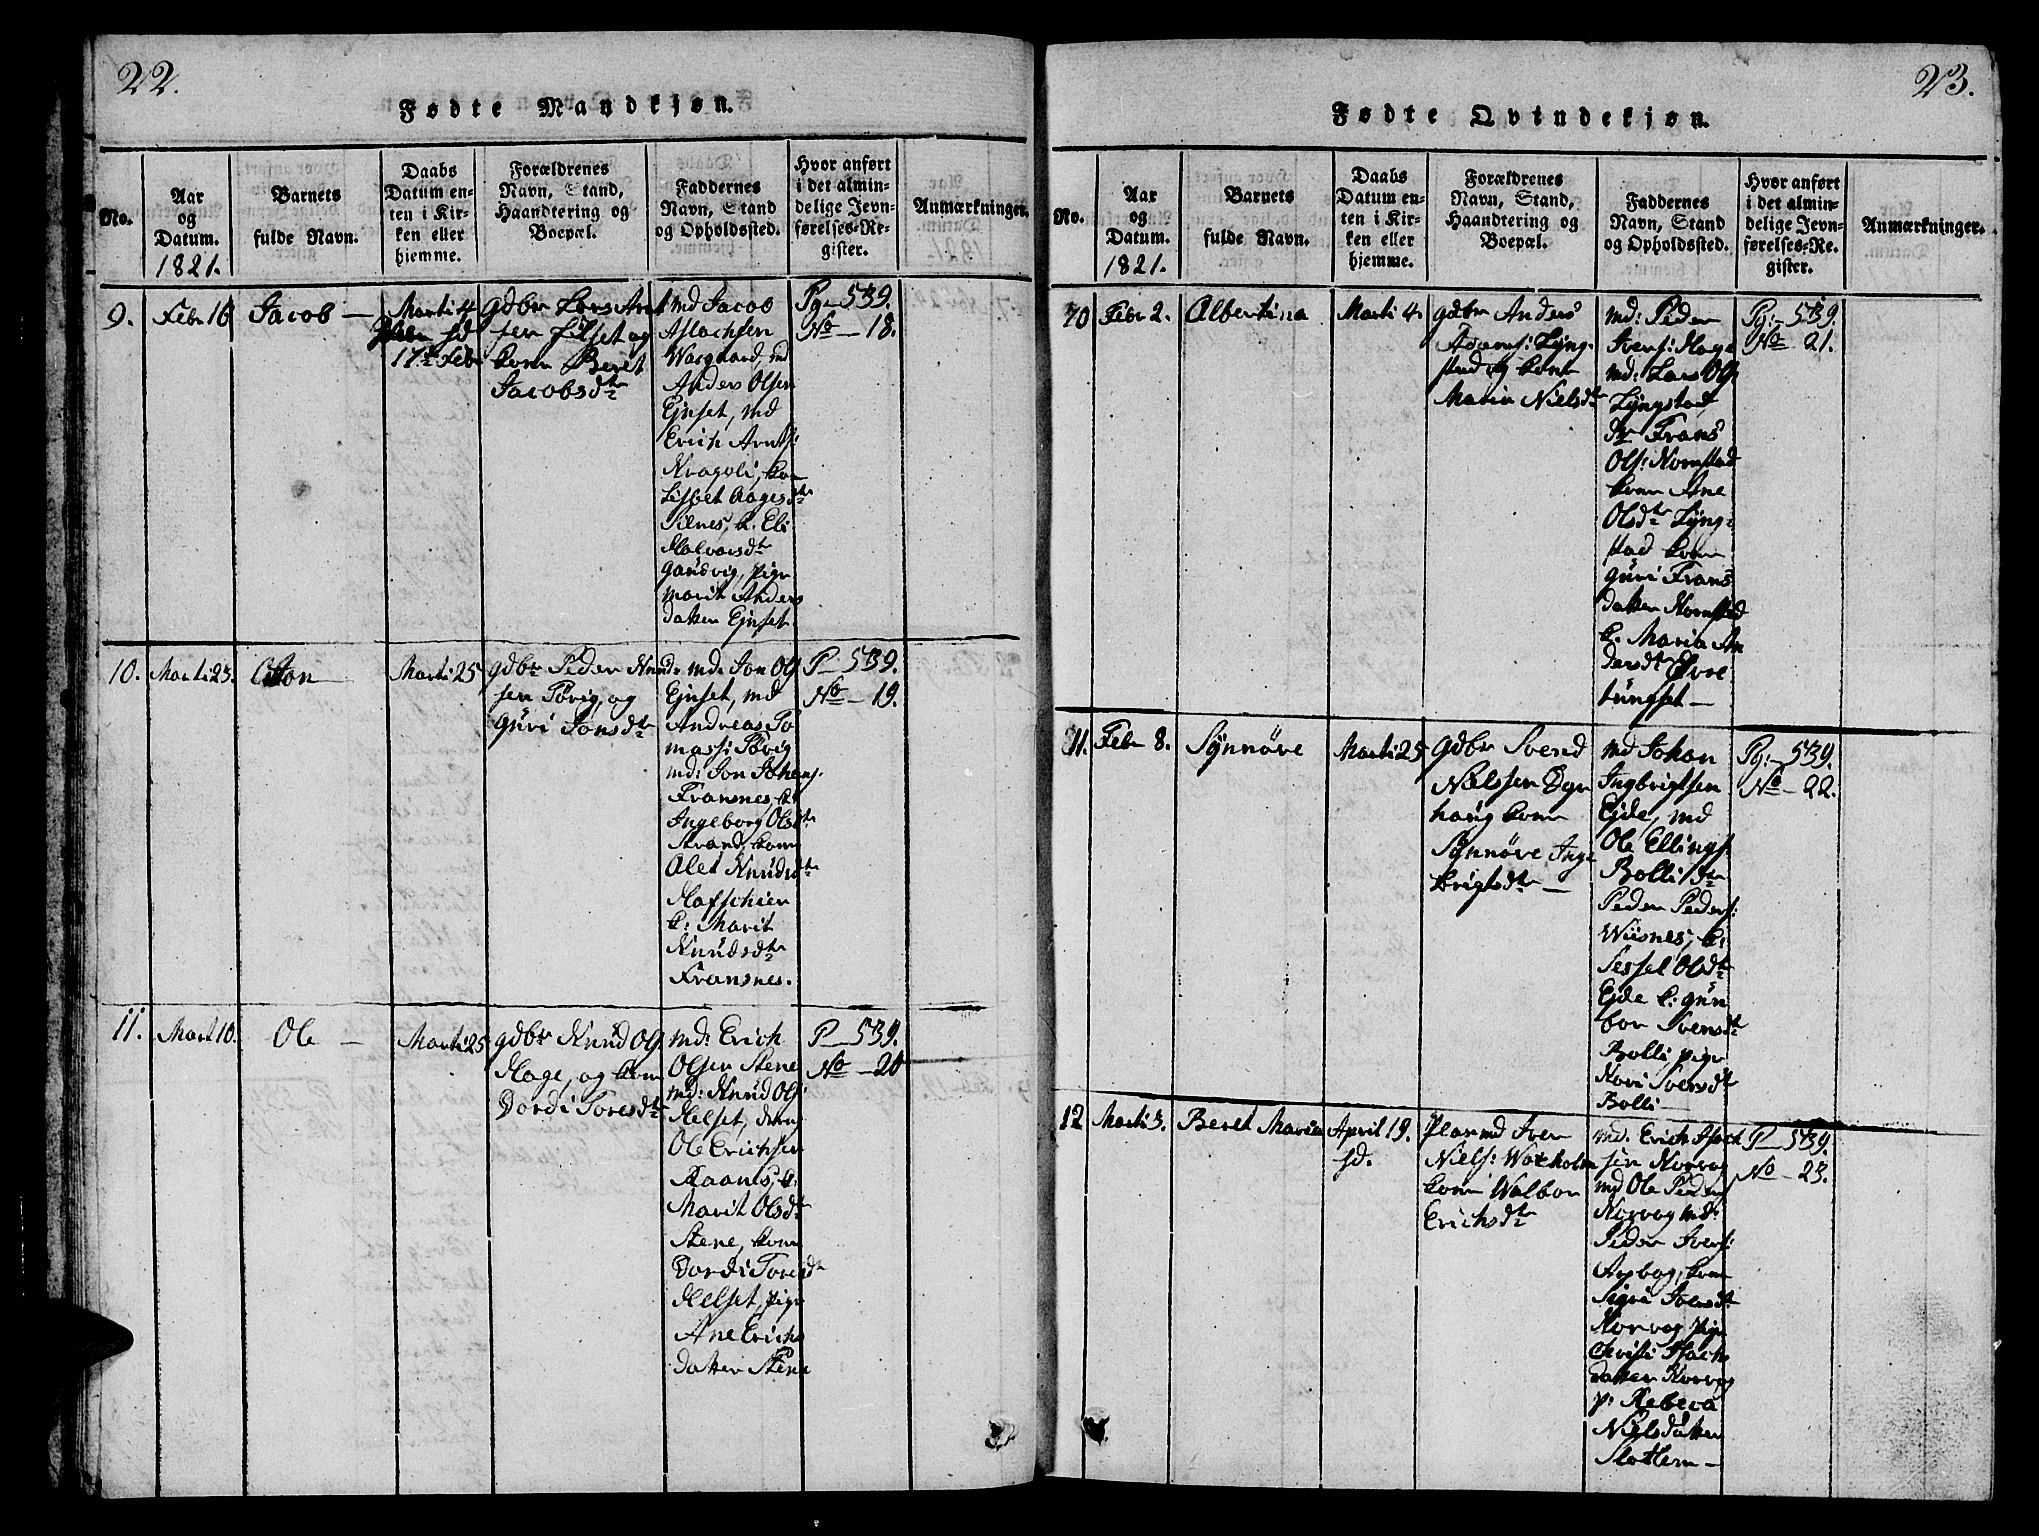 22.
Fødte Mandkjøn.
No.
Aar
og
Datum.
1821.
Barnets
fulde Navn.
Daabs
Datum en-
ten i Kir-
ken eller
hjemme.
Forældrenes
Navn, Stand,
Haandtering og
Boepæl.
Faddernes
Navn, Stand
og Opholdssted.
Hvor anført
i det almin-
delige Jevn-
førelses-Re-
gister.
Anmærkninger.
9.
Febr 16
Jacob —
Marti 4
sd
17de Febr
gdbr Lars Arnt
sen Lilset og
kone Beret
Jacobsdtr
md Jacob
Aslachsen
Waagaard, md
Anders Olsen
Ejnset, md
Erich Arnts:
Kragoli, kone
Lisbet Aagesdtr
Silnes, k. Eli
Halvorsdtr
Gandvig, pige
Marit Anders
datter Ejnset
Pg— 539.
No — 18.
10.
Marti 23.
Marti 25
gdbr Peder Knud-
sen Sørig, og
Guri Jonsdtr
md: Jon Ols
Ejnset, md
Andreas To
mass: Sørig
md: Jon Johans:
Fransnes, k:
Ingeborg Olsdtr
Strand, kone
Olet Knudsdtr
Hafschier
k: Marit
Knudsdtr
Fransnes.
P — 539.
No — 19.
11.
Mart 10.
Ole —
Marti 25
gdbr Knud Ols
Hage, og kone
Dordi Toresdtr
md: Erich
Olsen Stene
md: Knud Ols
Helset, dreng
Ole Erichsen
k:
Marit Olsdtr
Stene, kone
Dordi Toresdtr
Helset, pige
Ane Erichs
datter Stene
P — 539.
No — 20
23.
Fødte Qvindekjøn.
No.
Aar
og
Datum.
1821.
Barnets
fulde Navn.
Daabs
Datum en-
ten i Kir-
ken eller
hjemme.
Forældrenes
Navn, Stand,
Haandtering og
Boepæl.
Faddernes
Navn, Stand
og Opholdssted.
Hvor anført
i det almin-
delige Jevn-
førelses-Re-
gister.
Anmærkninger.
10
Febr 2.
Albertina
Marti 4.
gdbr Anders
Adams: Lyng-
stad og kone
Maria Nielsdtr
md: Peder
Ivers: Hage
md: Lars Ols
Lyngstad
dr Frans
Ols: Nornstad
kone Ane
Olsdtr Lyng-
stad kone
Guri Frans
datter Nornstad
k. Maria An
dersdtr Øvre
tungset —
Pg:— 539.
No 21.
11.
Febr 8.
Synnöve
Marti 25
gdbr Svend
Nielssen Dyr
haug kone
Synnöve Inge
brigtsdtr —
md Johan
Ingbrigtsen
Ejde, md
Ole Ellings:
Bolli
Peder Peders:
Wiisnes, k:
Sessel Olsdtr
Ejde k: Gun
bor Svensdtr
Bolli pige
Kari Svensdtr
Bolli —
Pg:— 539.
No — 22.
12
Marti 3.
Beret Maria
April 19.
sd.
Plasmd Iver
Niels: Waxholm
kone Walbor
Erichsdtr
md: Erich Isach
sen Norvog
md Ole Peders
Norvog md:
Peder Ivers:
Arsbog, kone
Sigri Iversdtr
Norvog pige
Christi Isachs
datter Norvog
p: Rebeca
Nielsdatter
Slatlem —
P — 539.
No — 23.